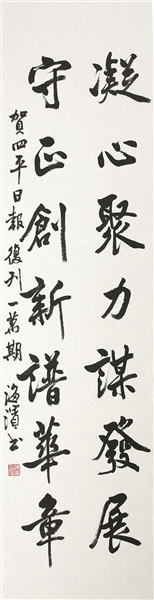 凝心聚力謀發展
守正創新譜華章
賀四平日報復刊一萬期
海濱书